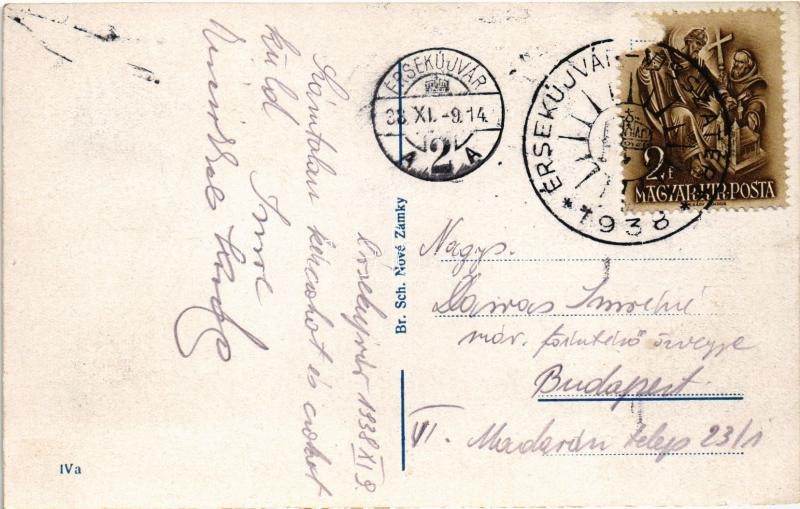 ÉRSEKÚJVÁR
38 XI. -9.14
A 2 A
ÉRSEKÚJVÁR VISSZATÉRT
* 1938 *
2 f
MAGYAR·KIR·POSTA
Érsekujvár 1938 XI 9.
Számtalan kézcsókot és csókot
küld
Imre
Br. Sch. Nové Zámky
Nagys.
Imréné
máv. főintéző özvegye
Budapest
VI. telep 23/1
IVa